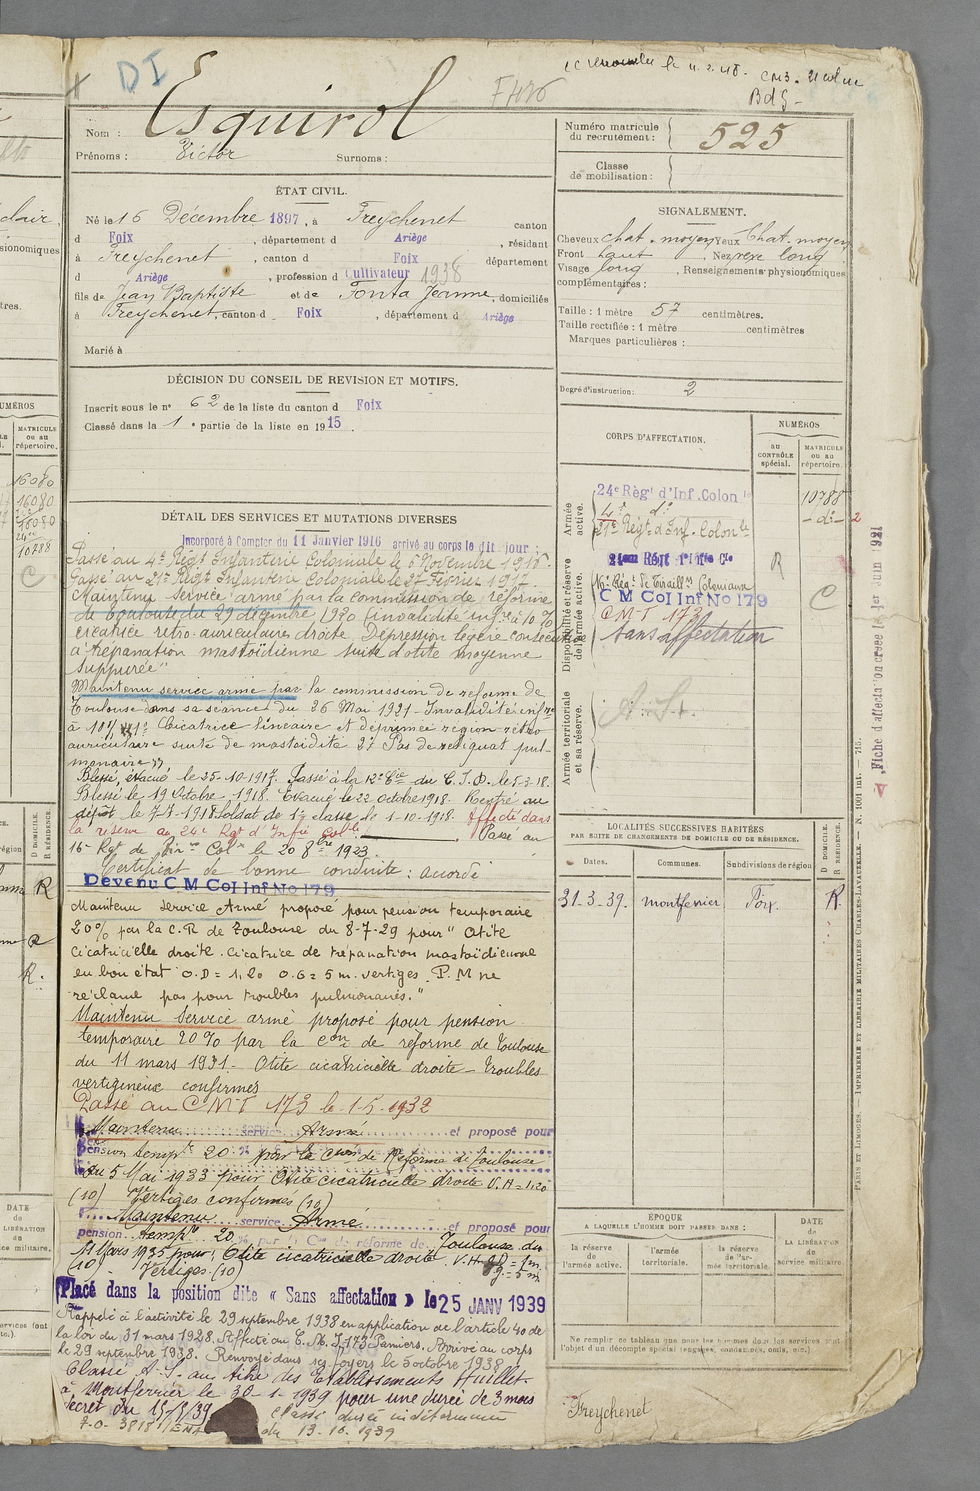 DI
F426
BdG-
Nom : Esquirol
Prénoms : Victor Surnoms :
Numéro matricule du recrutement : 525
Classe de mobilisation :
ÉTAT CIVIL.
Né le 16 Décembre 1897, à Freychenet canton
d Foix, département d Ariège, résidant
à Freychenet, canton d Foix département
d Ariège, profession d Cultivateur 1938
fils de Jean Baptiste et de Fonta Jeanne, domiciliés
à Freychenet, canton d Foix, département d Ariège
Marié à
SIGNALEMENT.
Cheveux chat. moyen Yeux Chat. moyen
Front haut, Nez long
Visage long, Renseignements physionomiques
complémentaires :
Taille : 1 mètre 57 centimètres.
Taille rectifiée : 1 mètre centimètres
Marques particulières :
Degré d'instruction : 2
DÉCISION DU CONSEIL DE REVISION ET MOTIFS.
Inscrit sous le n° 62 de la liste du canton d Foix
Classé dans la 1e partie de la liste en 1915.
DÉTAIL DES SERVICES ET MUTATIONS DIVERSES
Incorporé à Compter du 11 Janvier 1916 arrivé au corps le dit jour.
Passé au 4e Régt Infanterie Coloniale le 6 Novembre 1916.
Passé au 21e Régt Infanterie Coloniale le 27 Février 1917.
Maintenu service armé par la commission de réforme
de Toulouse du 29 décembre 1920 (invalidité infre à 10 %
cicatrice rétro-auriculaire droite. Dépression légère consécutive
à trépanation mastoïdienne suite d'otite moyenne
suppurée"
Maintenu service armé par la commission de réforme de
Toulouse dans sa séance du 26 Mai 1921 - Invalidité infre
à 10% 1° Cicatrice linéaire et déprimée région rétro
auriculaire suite de mastoïdite 2° Pas de reliquat pul-
monaire".
Blessé, évacué le 25-10-1917. Passé à la 12e Cie du C.I.D. le 5-2-18.
Blessé le 19 Octobre 1918. Evacué le 22 octobre 1918. Rentré au
dépôt le Soldat de 1re classe le 1-10-1918. Affecté dans
la réserve au 24e Rgt d'Infie Colle Passé au
16e Rgt de Colx le 20 8bre 1923
Certificat de bonne conduite : accordé
Devenu C M Col Inf No 179
Maintenu Service Armé proposé pour pension temporaire
20% par la C.R de Toulouse du 8-7-29 pour "Otite
cicatricielle droite. cicatrice de trépanation mastoïdienne
en bon état O.D = 1,20 O.G = 5 m. vertiges. P.M ne
réclame pas pour troubles pulmonaires."
Maintenu Service armé proposé pour pension
temporaire 20% par la Con de réforme de Toulouse
du 11 mars 1931. Otite cicatricielle droite - Troubles
vertigineux confirmés
Passé au CMI 173 le 1-5-1932
Maintenu service Armé et proposé pour
pension tempre 20 % par la Cion de Réforme de Toulouse
du 5 Mai 1933 pour Otite cicatricielle droite V.H = 1.20
(10) Vertiges confirmés (10)
Maintenu service Armé et proposé pour
pension tempre 20 % par la Con de réforme de Toulouse du
11 Mars 1935 pour : Otite cicatricielle droite V.H
(10) Vertiges (10)
Placé dans la position dite « Sans affectation » le 25 JANV 1939
Rappelé à l'activité le 29 septembre 1938 en application de l'article 40 de
la loi du 31 mars 1928. Affecté au C.M.I. 173 Pamiers. Arrivé au corps
le 29 septembre 1938. Renvoyé dans ses foyers le 5 octobre 1938
Classé A.S. au titre des Etablissements Huillet
à Montferrier le 30-1-1939 pour une durée de 3 mois
Classé durée indéterminée
du 13-10-1939
CORPS D'AFFECTATION.
NUMÉROS
AU CONTRÔLE spécial.
MATRICULE OU AU répertoire.
Armée active.
24e Régt d'Inf. Colonle 10788
4e d° -d°- 2
21e Régt d'Inf. Colonle
Disponibilité et réserve de l'armée active.
16e Régt de Tiraillrs Coloniaux
C M Col Inf No 179
CMI 173
Sans affectation
R
C
Armée territoriale et sa réserve.
A.S.
Fiche d'affectation créée le 1er Juin 1921
LOCALITÉS SUCCESSIVES HABITÉES
PAR SUITE DE CHANGEMENTS DE DOMICILE OU DE RÉSIDENCE.
Dates. Communes. Subdivisions de région D DOMICILE. R RÉSIDENCE.
31-3-39. Montferrier Foix. R.
ÉPOQUE
A LAQUELLE L'HOMME DOIT PASSER DANS :
la réserve de l'armée active.
l'armée territoriale.
la réserve de l'armée territoriale.
DATE de LA LIBÉRATION du service militaire
Ne remplir ce tableau que pour les hommes dont les services font
l'objet d'un décompte spécial (engagés, condamnés, omis, etc.)
PARIS ET LIMOGES. — IMPRIMERIE ET LIBRAIRIE MILITAIRES CHARLES-LAVAUZELLE. — N. 1001 int. — 715.
Freychenet
UMÉROS
MATRICULE OU AU répertoire.
16080
16080
16080
10788
C
D DOMICILE.
R RÉSIDENCE
R
R
R.
DATE de LA LIBÉRATION du service militaire.